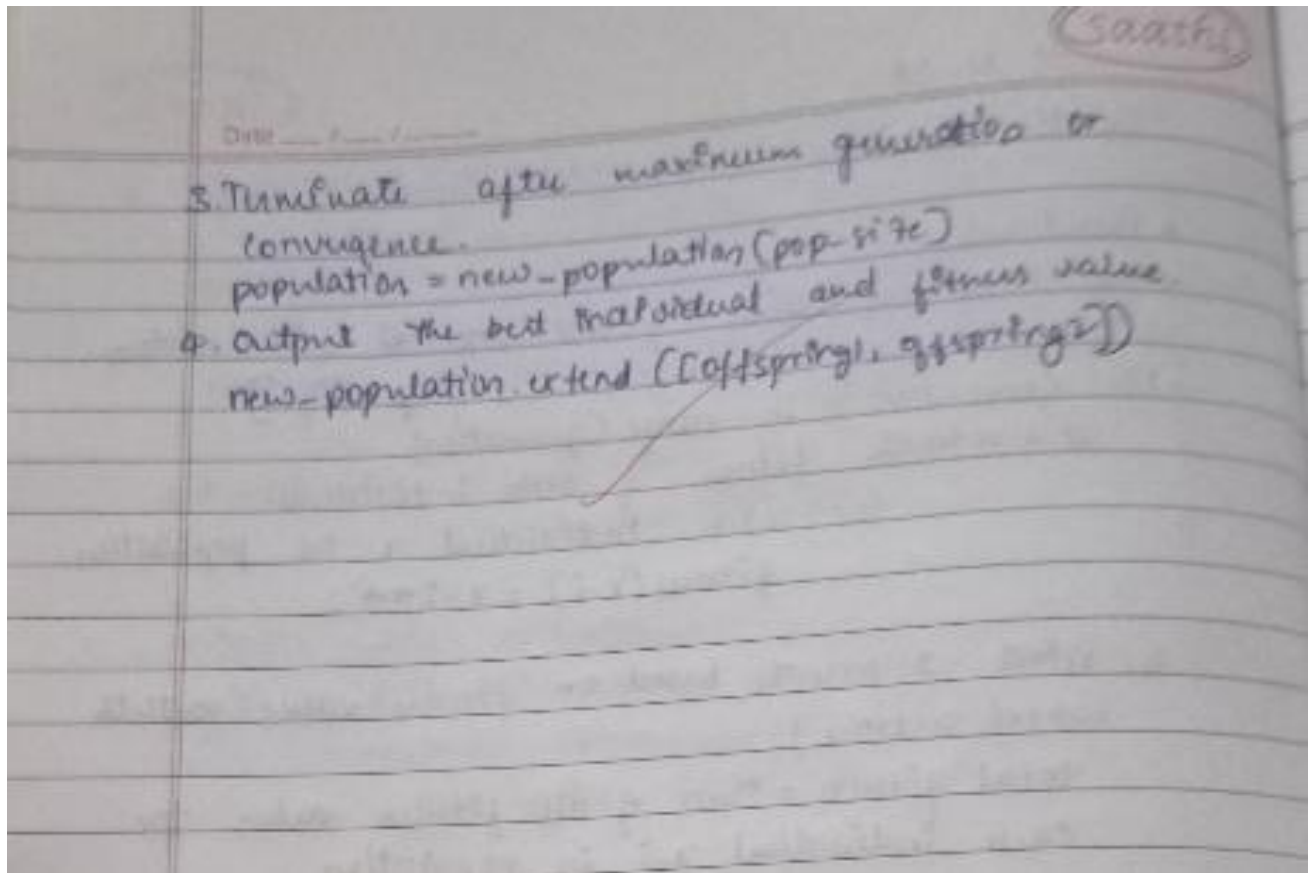 saathi
Date __/__/____
3. Terminate after maximum generation or
convergence.
population = new_population (pop_size)
4. Output the best individual and fitness value.
new_population.extend ([offspring1, offspring2])